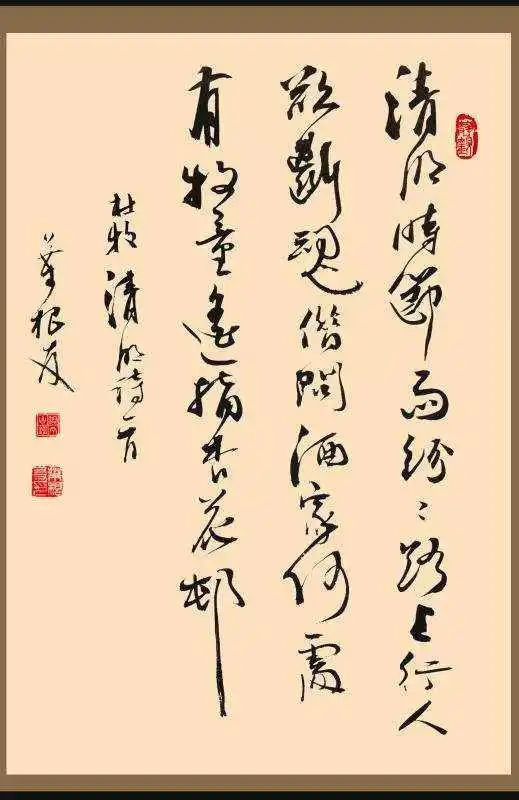 清明時節雨紛〻路上行人
欲斷魂借問酒家何處
有牧童遙指杏花邨
杜牧清明詩一首
葉根友